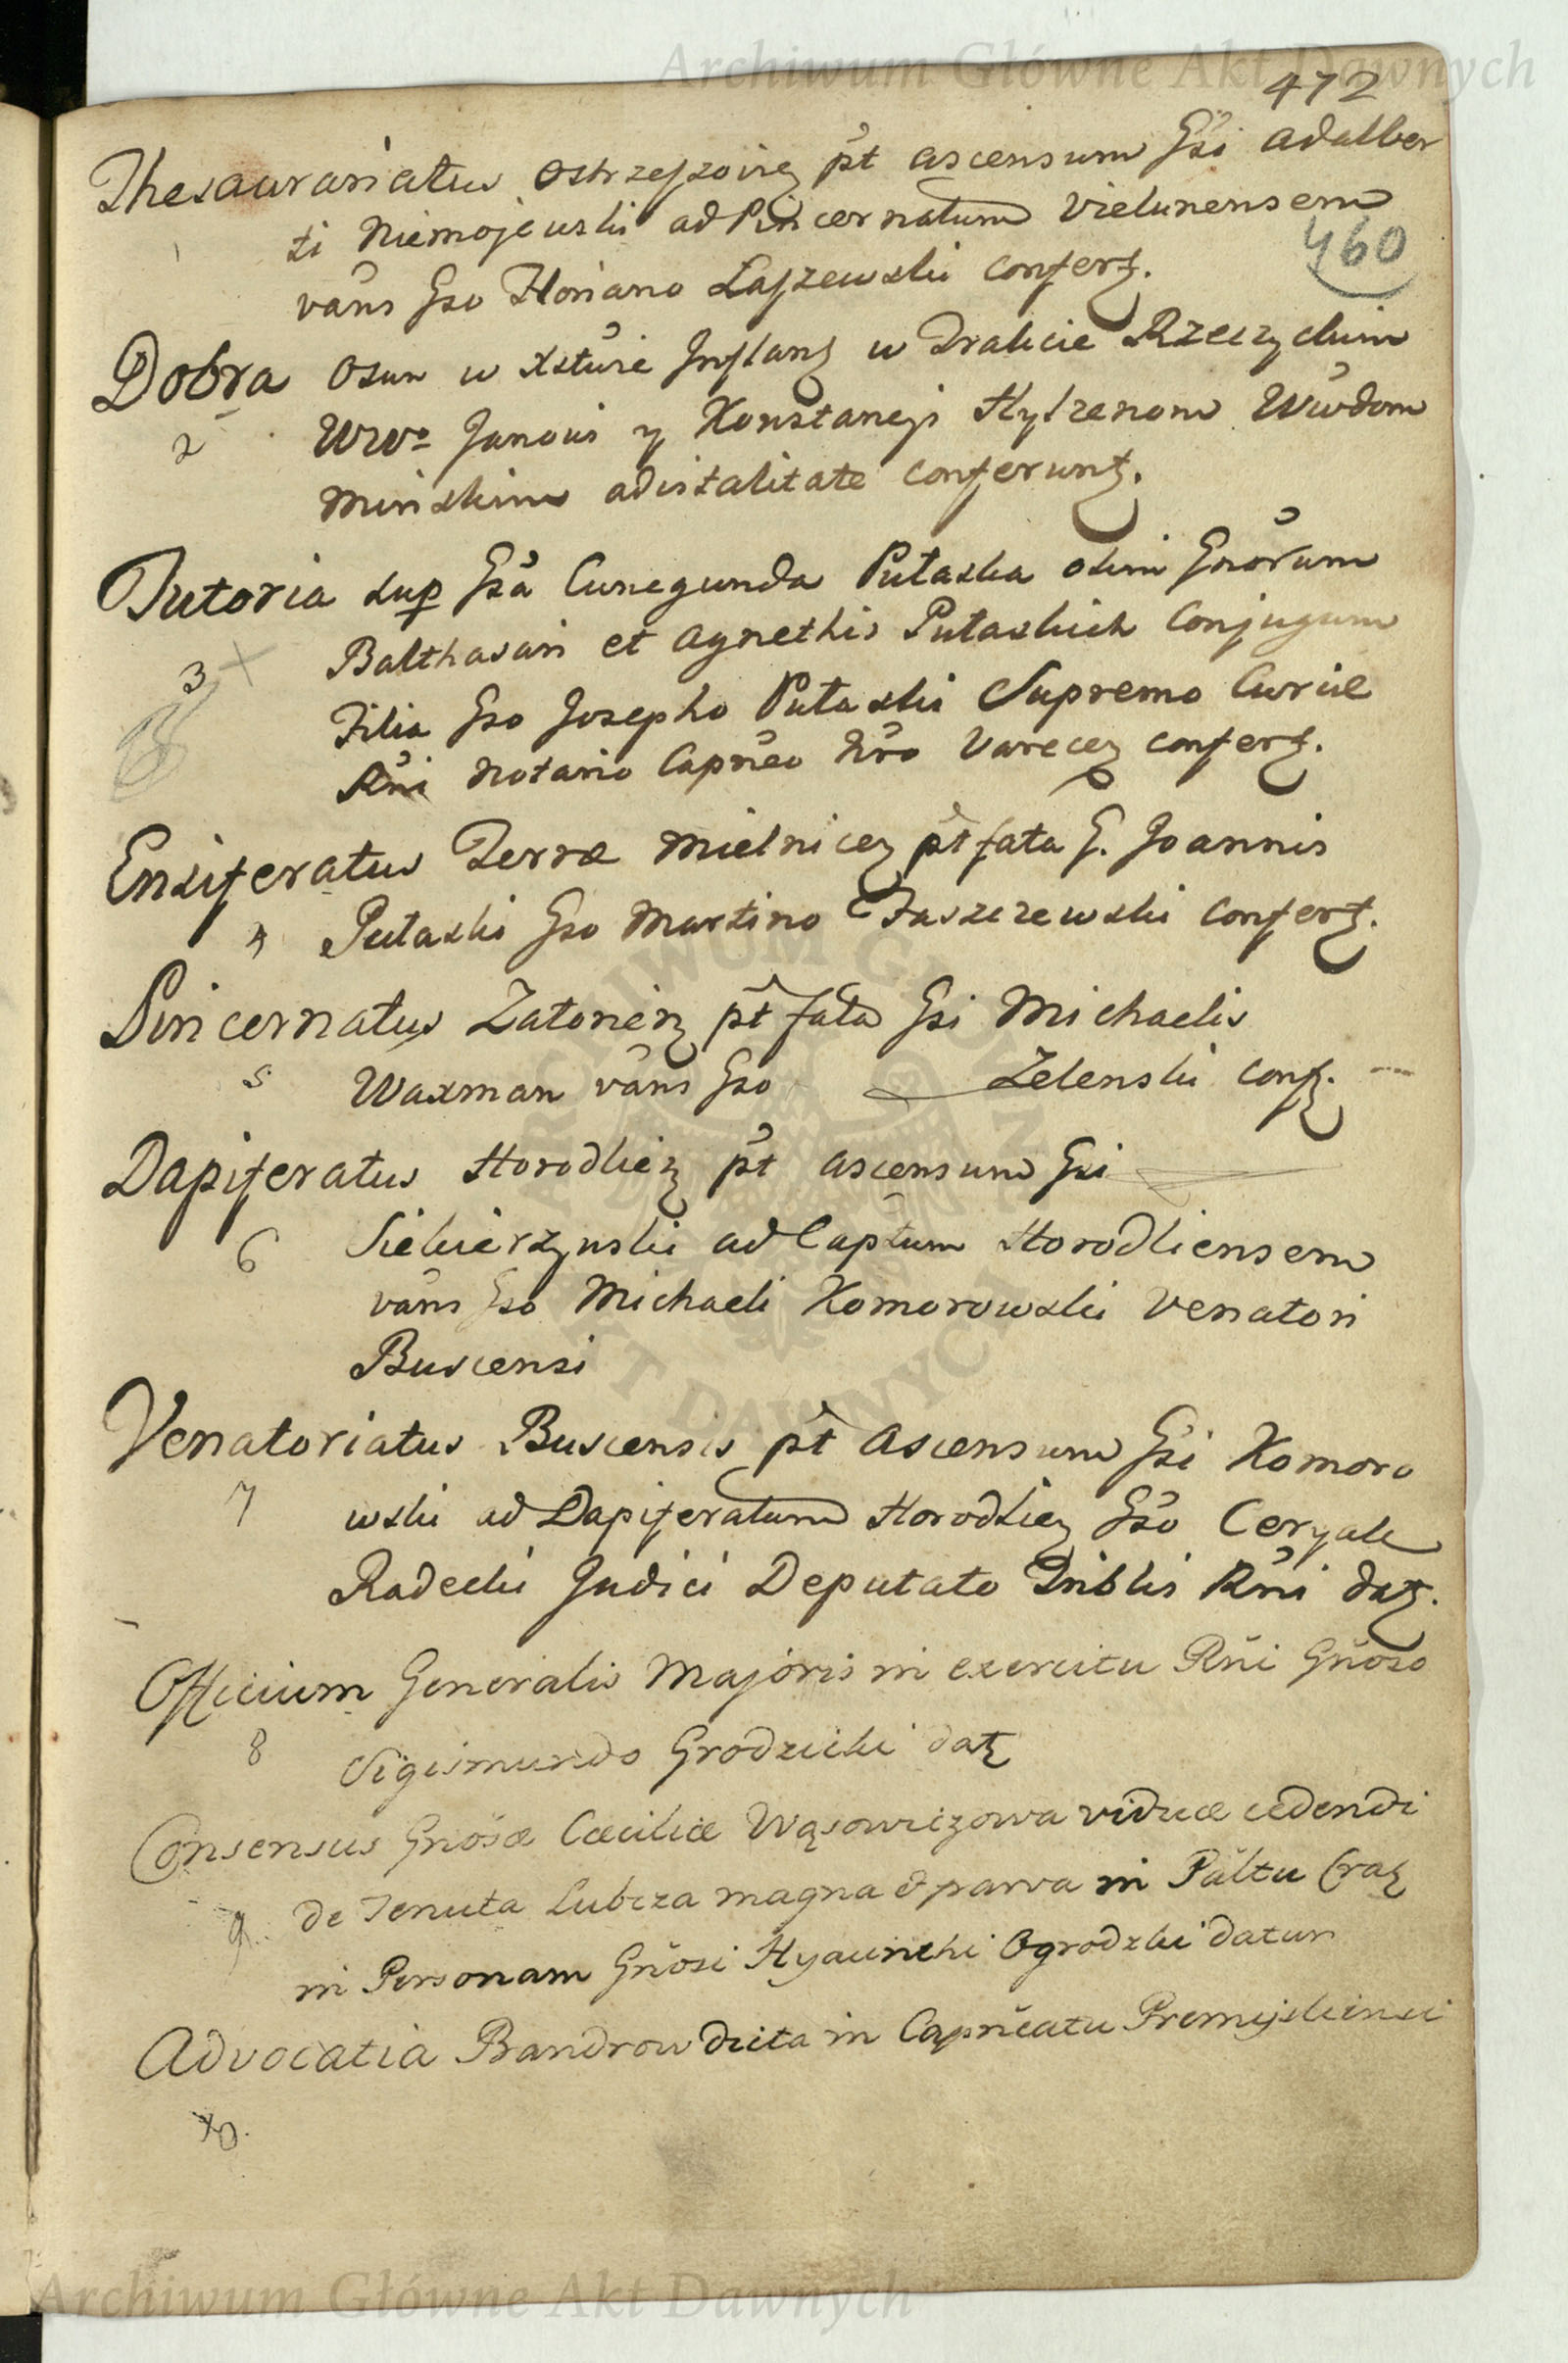 Archiwum Główne Akt Dawnych
472
Thesaurariatus Ostrzeszovien pt ascensum Gsi Adalber
ti Niemojewski ad Pincernatum Vielunensem
460
1 vans Gso Floriano Łaszewski confert.
Dobra Osun w Xstwie Inflant w Trakcie Rzeczyckim
2 WWo Janowi y Konstancyi Hylzenom Wwdom
Minskim ad vitalitate conferunt.
Tutoria sup Gsa Cunegunda Pułaska olim Gnorum
Balthasari et Agnethis Pułaskich Conjugum
3 Filia Gso Josepho Pułaski Supremo Curiæ
Rni Notario Capneo Nro Varecen confert.
Ensiferatus Terræ Mielnicen pt fata G. Joannis
4 Pułaski Gso Martino Faszczewski confert.
Pincernatus Zatorien pt fata Gsi Michaelis
5 Waxman vans Gso Zelenski conft.
Dapiferatus Horodlien pt ascensum Gsi
6 Siekierzynski ad Captum Horodliensem
vans Gso Michaeli Komorowski Venatori
Buscensi
Venatoriatus Buscensis pt Ascensum Gsi Komoro
7 wski ad Dapiferatum Horodlien Gso
Radecki Judici Deputato Triblis Rni dat.
Officium Generalis Majoris in exercitu Rni Gnoso
8 Sigismundo Grodzicki dat
Consensus Gnosæ Cæciliæ Wąsowiczowa viduæ cedendi
9. de Tenuta Lubcza magna & parva in Paltu Crac
in Personam Gnosi Hyacinthi Ogrodzki datur
Advocatia Bandrow dicta in Capneatu Premysliensi
10.
ARCHIWUM GŁÓWNE AKT DAWNYCH
Archiwum Główne Akt Dawnych